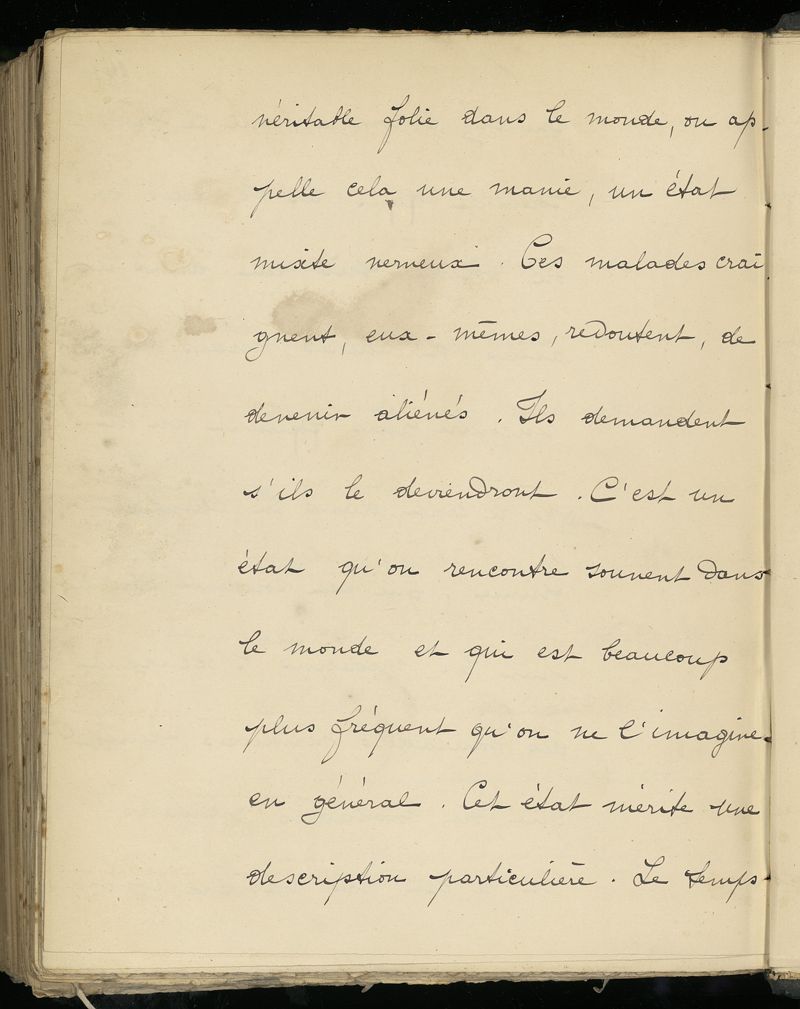 véritable folie dans le monde, on ap-
pelle cela une manie, un état
mixte nerveux. Ces malades crai
gnent, eux-mêmes, redoutent, de
devenir aliénés. Ils demandent
s'ils le deviendront. C'est un
état qu'on rencontre souvent dans
le monde et qui est beaucoup
plus fréquent qu'on ne l'imagine
en général. Cet état mérite une
description particulière. Le temps